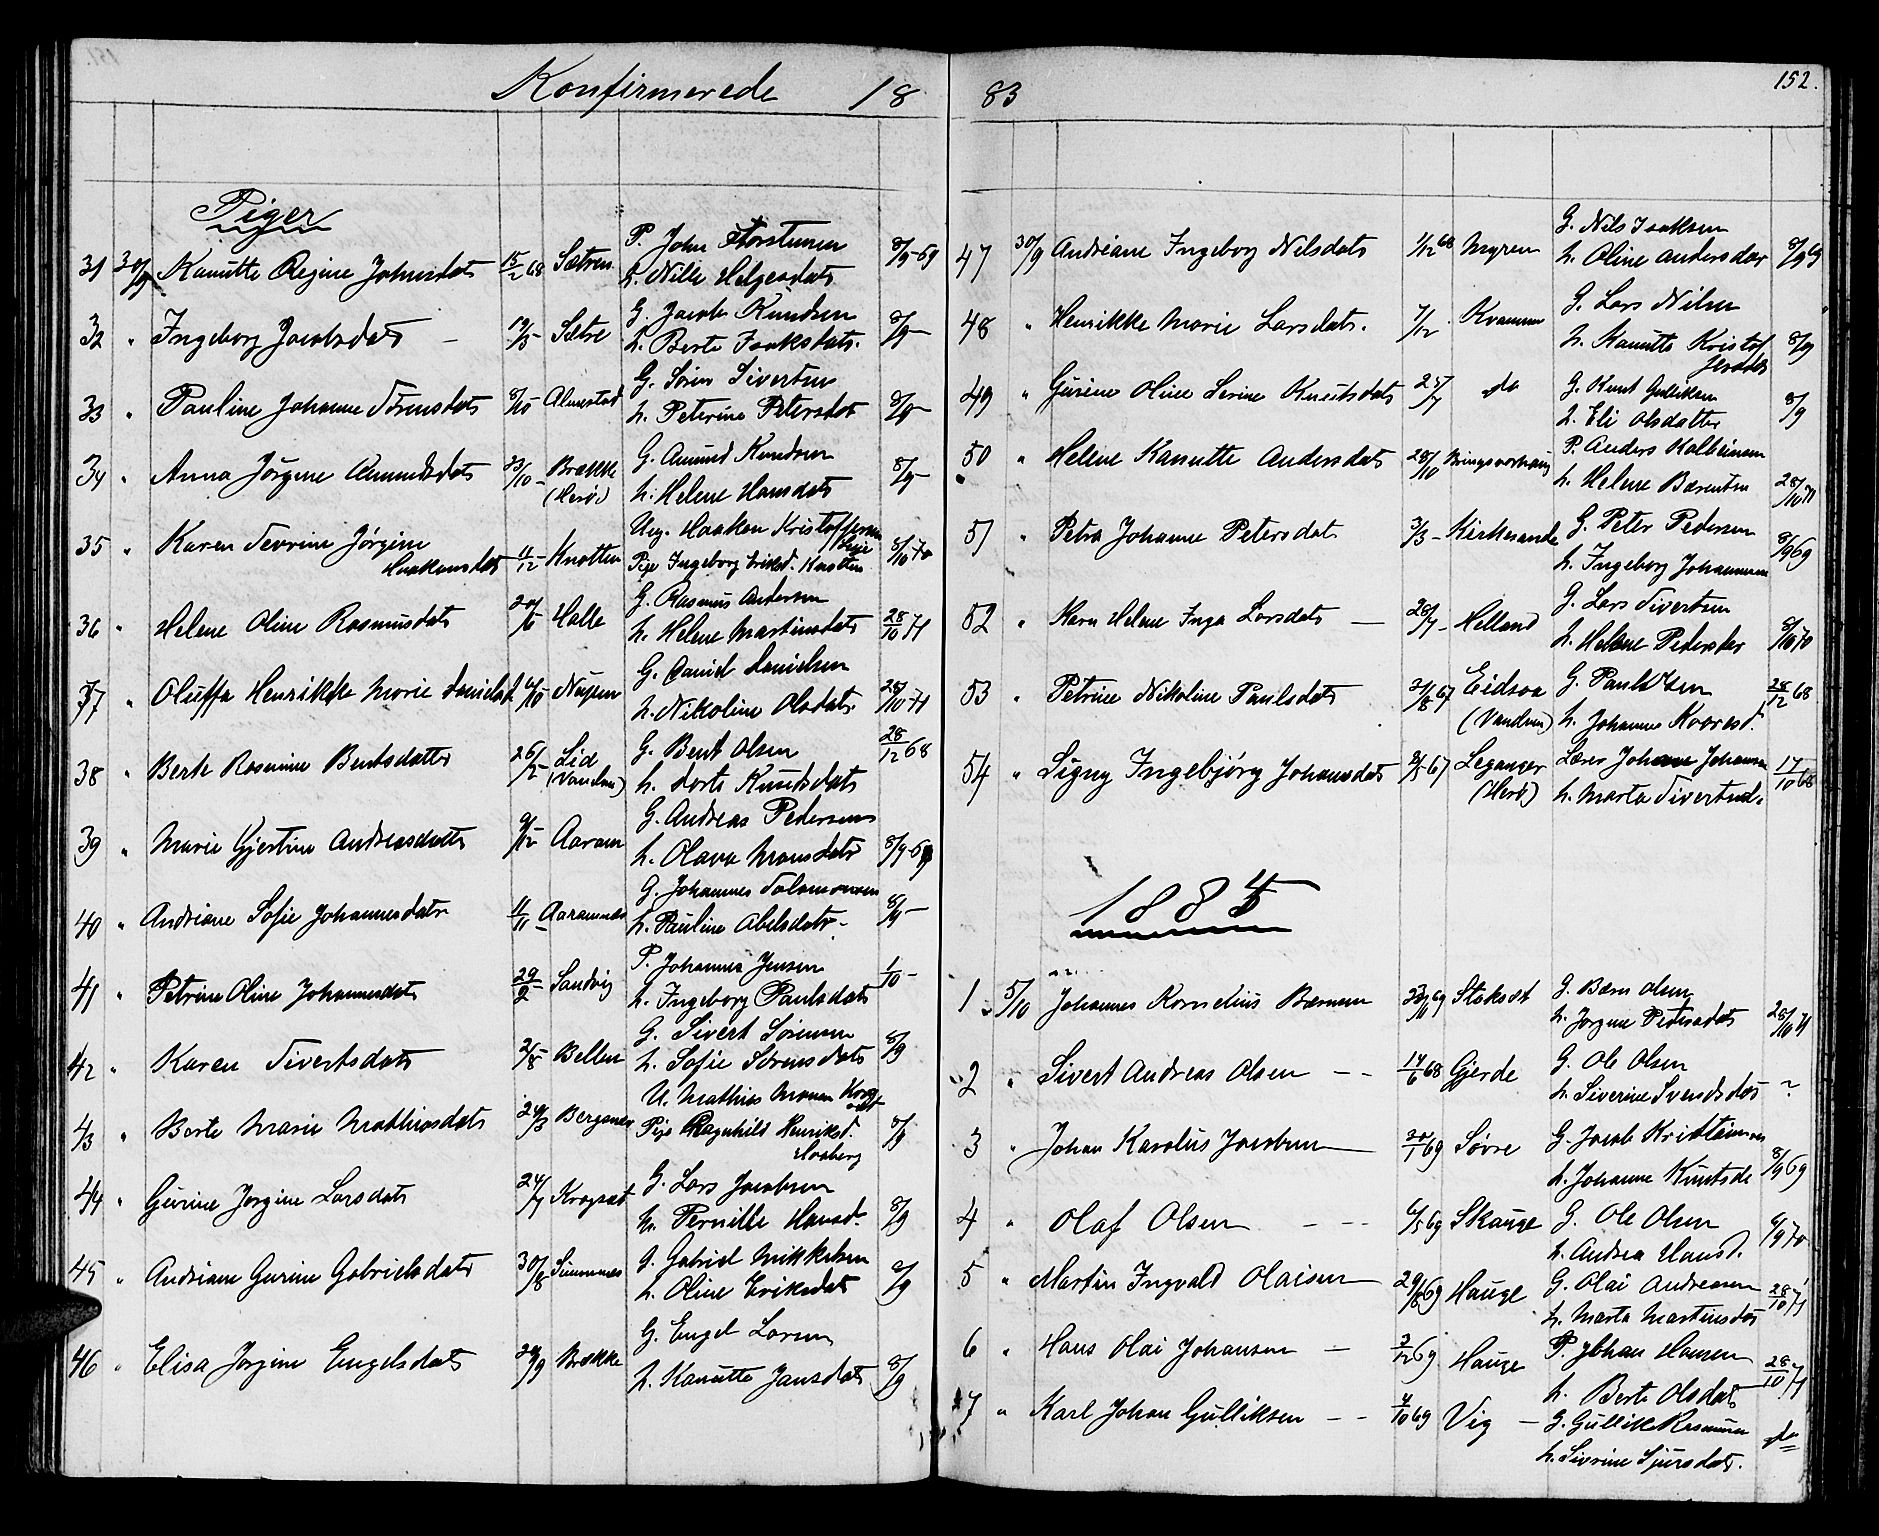 152.
Konfirmerede 18 83
Piger
31 30/9 Kanutte Regine Johnsdatr 15/2 68 Sætren P. John Thorstensen 8/9-69
h. Nille Helgesdatr
32 " Ingeborg Jacobsdatr - 19/5 Sætre G. Jacob Knudsen 8/9-
h. Berte Isaksdatr.
33 " Pauline Johanne Sørensdatr 8/10 Almestad G. Søren Sivertsen 8/9-
h. Peterine Petersdatr
34 " Anna Jørgine Amundsdatr 23/10- Brække G. Amund Knudsen 8/9-
(Herø) h. Helene Hansdatr
35 " Karen Severine Jørgine Ung. Haakon Kristoffersen
Haakonsdatr 11/12- Knotten Pige Ingeborg Eriksd. Knotten 8/10 70
36 " Helene Oline Rasmusdatr 20/6- Halle G. Rasmus Andersen 28/10 71
h. Helene Martinsdatr
37 " Oluffa Henrikke Marie Danielsd. Nupen G. Daniel Danielsen 28/10 71
h. Nikoline Olsdatr
38 " Berte Rasmine Bentsdatter 26/12- Lid G. Bent Olsen 28/12 68
(Vandven) h. Dorte Knutsdatr
39 " Marie Gjertine Andreasdatr 9/12- Aaram G. Andreas Pedersen 8/9-69
h. Olava Monsdatr
40 " Andriane Sofie Johannesdatr 11/11- Aaramnes G. Johannes Salomonsen 8/9-
h. Pauline Abelsdatr-
41 " Petrine Oline Johannesdatr 29/2- Sandvig P. Johannes Jensen 1/10-
h. Ingeborg Paulsdatr
42 " Karen Sivertsdatr 2/8- Bellen G. Sivert Sørensen 8/9
h. Sofie Sørensdatr
43 " Berte Marie Mathiasdatr 24/3 Bergsnes U. Mathias Monsen
Pige Ragnhild Henriksd. 8/9
44 " Gurine Jørgine Larsdatr 24/7 Krogsæt G. Lars Jacobsen
h. Pernille Hansd. 8/9
45 " Andriane Gurine Gabrielsdatr 30/8 Simmenes G. Gabriel Mikkelsen
h. Oline Eriksdatr 8/9
46 " Elisa Jørgine Engelsdatr 20/9 Brække G. Engel Larsen
h. Kanutte Jansdatr 8/9
47 30/9 Andriane Ingeborg Nilsdatr 1/12 68 Myren G. Nils Isaksen
h. Oline Andersdatr 8/9 69
48 " Henrikke Marie Larsdatr. 7/12 Kvammen G. Lars Nilsen
h. Kanutte Kristoffersdatr 8/9
49 " Gurine Oline Serine Knutsdatr 25/7 do G. Knut Gulliksen
h. Eli Olsdatter 8/9
50 " Helene Kanutte Andersdatr 28/10 Bringsvorhaug P. Anders Kolbeinsen
h. Helene Bærentsen 28/10 71
51 " Petra Johanne Petersdatr 3/3- Kirkesande G. Peter Pedersen
h. Ingeborg Johannesen 8/9 69
52 " Karn Helene Inga Larsdatr - 28/7- Helland G. Lars Sivertsen
h. Helene Pedersdatr 8/10 70
53 " Petrine Nikoline Paulsdatr 31/8 67 Eidsaa G. Paul Olsen 28/12 68
(Vandven) h. Johanne Kaaresd.
54 " Signy Ingebjørg Johansdatr 2/5 67 Leganger Lærer Johan Johansen 17/10 68
(Herø) h. Marta Sivertsd.
1884
1 5/10 Johannes Kornelius Bærnsen Stoksæt G. Bærn Olsen
h. Jørgine Petersdatr 28/10 71
2 " Sivert Andreas Olsen - - 14/6 68 Gjerde G. Ole Olsen
h. Siverine Svendsdatr ?
3 " Johan Karolus Jacobsen 20/1 69 Søvre G. Jacob Kristiansen
h. Johanne Knutsdr. 8/9 69
4 " Olaf Olsen - - - 6/5 69 Skauge G. Ole Olsen
h. Andrea Hansd. 6/9 70
5 " Martin Ingvald Olaisen 29/8 69 Hauge G. Olai Andreasen 28/10 71
h. Marta Martinsdatr
6 " Hans Olai Johansen - 2/12 69 Hauge P. Johan Hansen 28/10 71
h. Berte Olsdatr
7 " Karl Johan Gulliksen - - 4/10 69 Vig - G. Gullik Rasmussen do
h. Sivrine Sjursdatr.